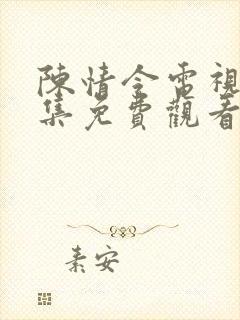 陳情令電視
集免費觀看
素安